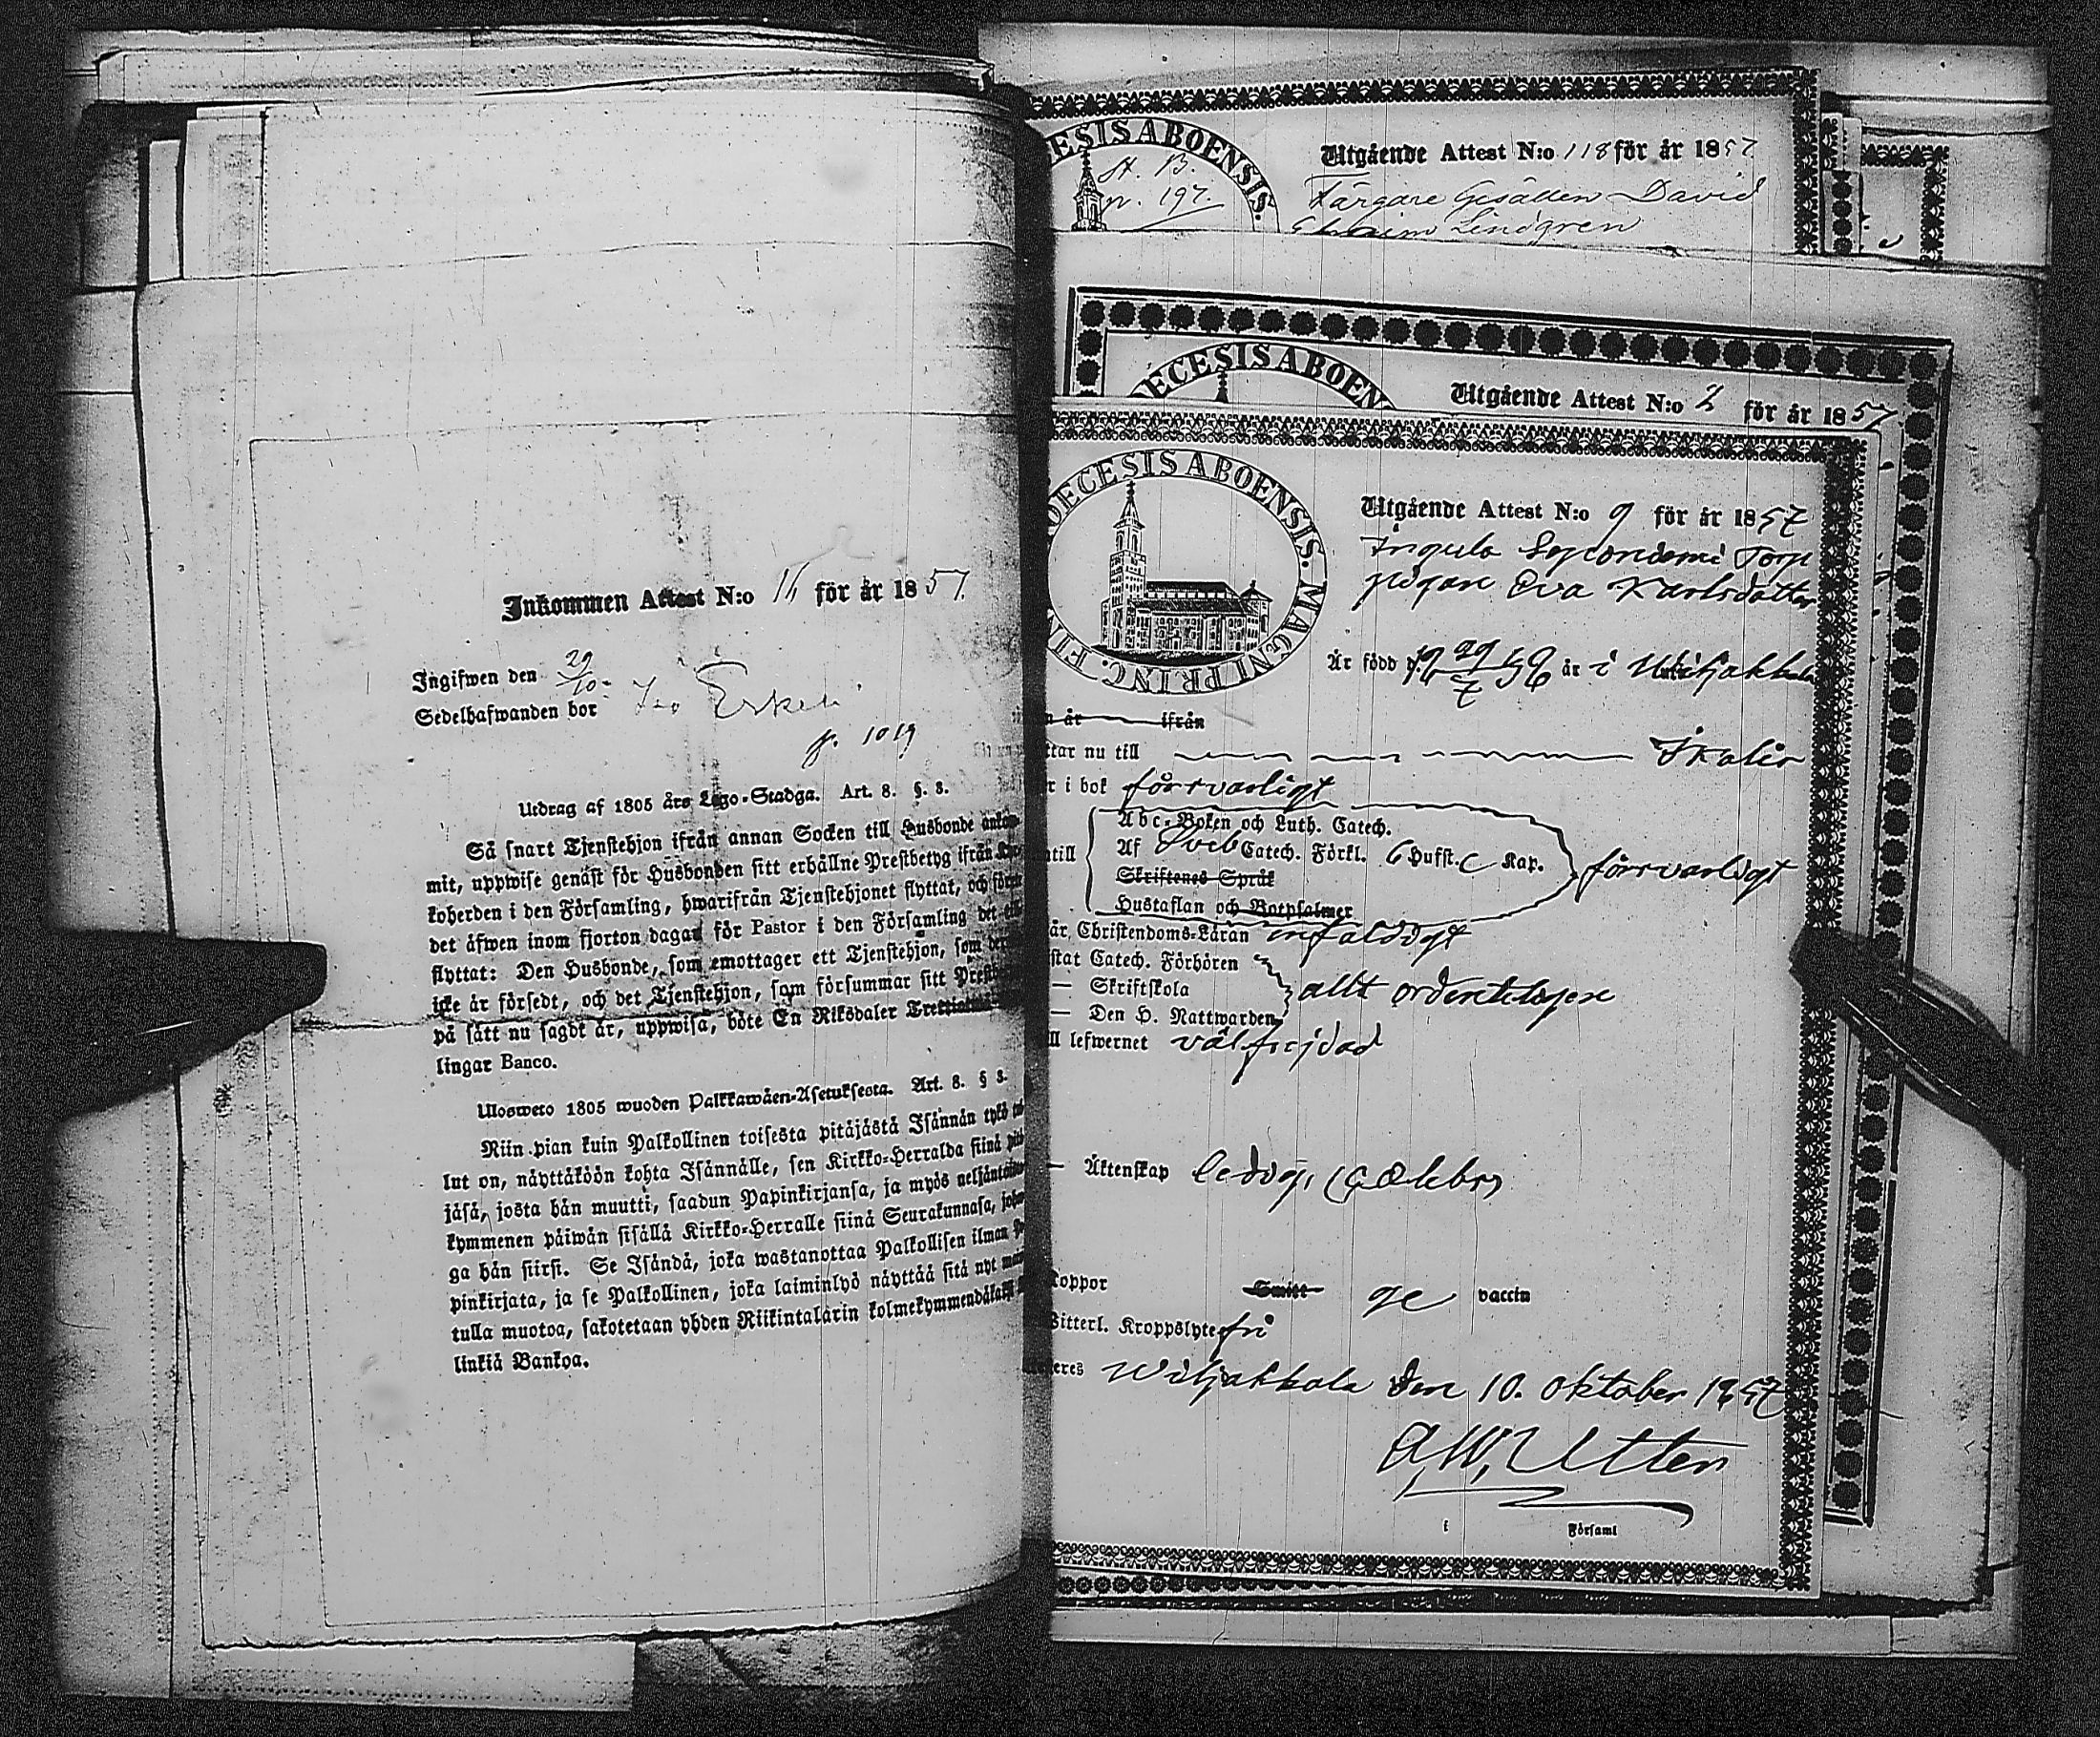 Inkommen Attest N:o 16 för år 1857.
Ingifwen den 29/10.
Sedelhafwanden bor
p. 1019
Utdrag af 1805 års Lego-Stadga. Art. 8. §. 8.
Så snart Tjenstehjon ifrån annan Socken till Husbonde
mit, uppwise genast för Husbonden sitt erhållne Prestbetyg ifrån
koherden i den Församling, hwarifrån Tjenstehjonet flyttat, och
det äfwen inom fjorton dagar för Pastor i den Församling det
flyttat: Den Husbonde, som emottager ett Tjenstehjon, som
icke är försedt, och det Tjenstehjon, som försummar sitt
på sätt nu sagdt är, uppwisa, böte En Riksdaler
lingar Banco.
Ulosweto 1805 wuoden Palkkawäen-Asetuksesta. Art. 8. § 8.
Niin pian kuin Palkollinen toisesta pitäjästä Isännän tykö
lut on, näyttäköön kohta Isännälle, sen Kirkko-Herralda siinä
jäsä, josta hän muutti, saadun Papinkirjansa, ja myös
kymmenen päiwän sisällä Kirkko-Herralle siinä Seurakunnasa,
ga hän siirsi. Se Isändä, joka wastanottaa Palkollisen ilman
pinkirjata, ja se Palkollinen, joka laiminlyö näyttää sitä nyt
tulla muotoa, sakotetaan yhden Riikintalarin
linkiä Bankoa.
ECESIS ABOENSIS.
p. 197.
Utgående Attest N:o 118 för år 1857
Färgare Gesällen David
Lindgren
ECESIS ABOEN
Utgående Attest N:o 2 för år 1857
OECESIS ABOENSIS. MAGNI PRINC. FIN
Utgående Attest N:o 9 för år 1857
pigan Eva Karlsdotter
Är född år i
år ifrån
tar nu till Ikalis
i bok försvarligt
Abc-Boken och Luth. Catech.
Af Sveb Catech. Förkl. 6 Hufst. Kap.
Skriftenes Språk
Hustaflan och Botpsalmer
försvarligt
år Christendoms-Läran enfaldigt
stat Catech. Förhören
— Skriftskola
— Den H. Nattwarden
allt ordentligen
lefwernet välfrejdad
— Äktenskap ledig
koppor Smitt ge vaccin
Witterl. Kroppslyte fri
Wiljakkala den 10. oktober 1857
A. W. Utter
i Församl